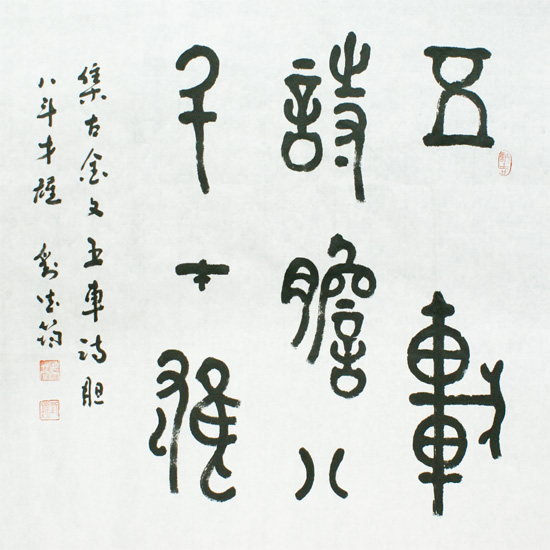 五車
詩膽八
斗才雄
集古金文五車诗胆
八斗才雄 劉